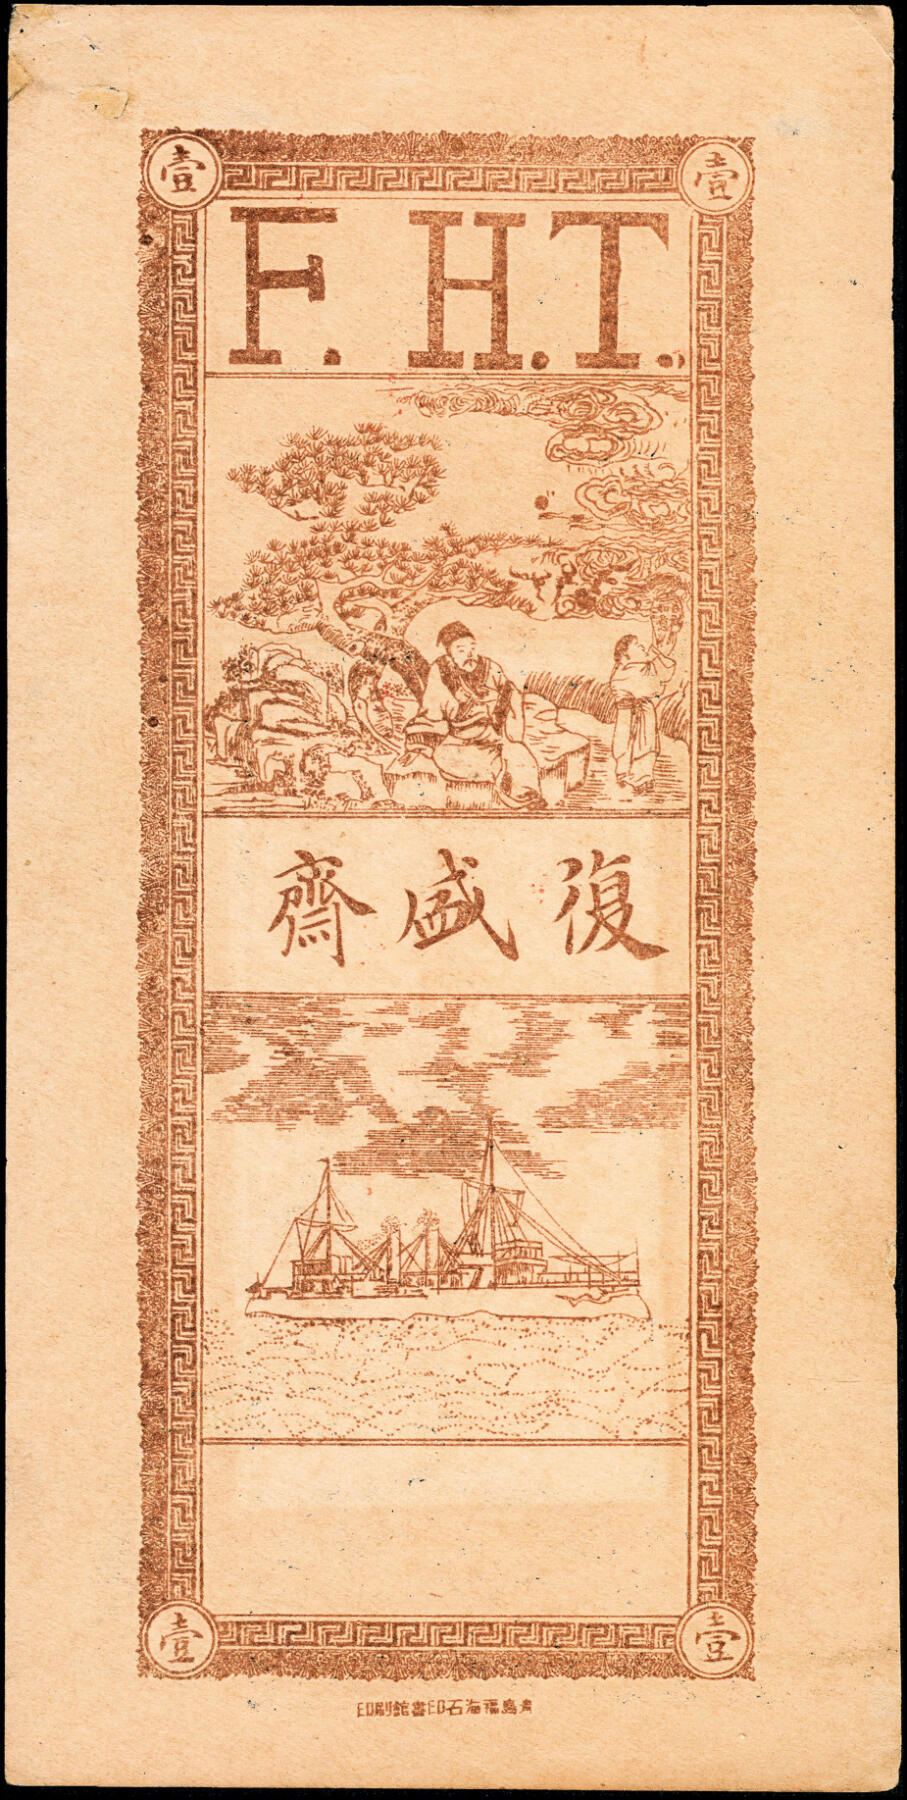 壹 壹
F. H. T.
復盛齋
壹 壹
青島福海石印書館刷印